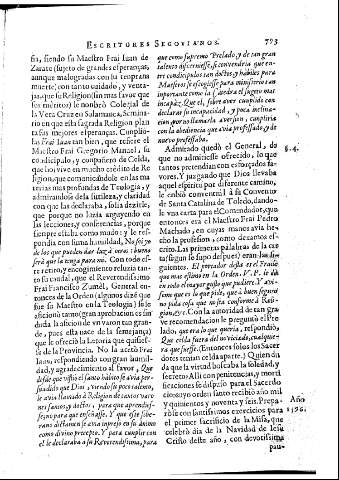 ESCRITORES SEGOVIANOS. 773
sia, siendo su Maestro Frai Iuan de
Zarate (sujeto de grandes esperanças,
aunque malogradas con su temprana
muerte) con tanto cuidado, y venta-
ja, que su Religion (sin mas favor que
sus meritos) le nonbrò Colegial de
la Vera Cruz en Salamanca, Semina-
rio en que esta sagrada Religion plan-
ta sus mejores esperanças. Cunplio-
las Frai Iuan tan bien, que refiere el
Maestro Frai Gregorio Manuel, su
condicipulo, y conpañero de Celda,
que los vuo en mucho credito de Re-
ligion, que comunicandole en las ma-
terias mas profundas de Teologia, y
admirandose de la sutileza, y claridad
con que las declaraba, solia dezirle,
que porque no luzia arguyendo en
las lecciones, y conferencias, porque
sienpre estaba como mudo: y le res-
pondia con suma humildad, No soi yo
de los que pueden dar luz à otros: bueno
serà que la tenga para mi. Con todo es-
te retiro, y encogimiento reluzia tan-
to su caudal, que el Reverendissimo
Frai Francisco Zumèl, General en-
tonces de la Orden (algunos dizè que
fue su Maestro en la Teologia) se le
aficionò tanto (gran aprobacion es sin
duda la aficion de vn varon tan gran-
de, pues esta nace de la semejança)
que le ofreciò la Letoria que quisies-
se de la Provincia. No la acetò Frai
Iuan, respondiendo con gran humil-
dad, y agradecimiento al favor, Que
desde que vistiò el santo habito le avia per-
suadido que Dios, viendo su poco talento,
le avia llamado à Religion de tantos varo-
nes santos, y doctos, para que aprendies-
se, no para que enseñasse. Y que este sobe-
rano dictamen le avia inpreso en su animo
como divino precepto. Y para cunplir con
el le declaraba a su Reverendissima, para
que como supremo Prelado, y de tan gran
talento discerniesse, si convendria que en-
tre condicipulos tan doctos, y habiles para
Maestros se escogiesse para ministerio tan
inportante como la Catedra el sugeto mas
incapàz. Que el, sobre aver cunplido con
declarar su incapacidad, o poca inclina-
cion, por no llamarla aversion, cunpliria
con la obediencia que avia professado, y de
nuevo professaba.
Admirado quedò el General, de §. 4.
que no admitiesse ofrecido, lo que
tantos pretendian con esforçados fa-
vores. Y juzgando que Dios llevaba
aquel espiritu por diferente camino,
le enbiò conventual à su Convento
de Santa Catalina de Toledo, dando-
le vna carta para el Comendador, que
entonces era el Maestro Frai Pedro
Machado, en cuyas manos avia he-
cho la profession, como dexamos es-
crito. Las primeras palabras de la car-
ta (segun se supo despues) eran las si-
guientes. El portador desta es el Fraile
que mas estimo en la Orden. V. P. le dè
en todo el mayor gusto que pudiere. Y avi-
sime que es lo que pide, que a buen seguro
no pida cosa que no sea conforme à Reli-
gion, &c. Con la autoridad de tan gra-
ve recomendacion le preguntò el Pre-
lado, que era lo que queria, respondiò,
Que celda fuera del noviciado, cualquie-
ra que fuesse. (Entonces solos los Sacer-
dotes tenian celda parte.) Quien di-
da que la virtud buscaba la soledad, y
secreto. Alli con penitencias, y morti-
ficaciones se dispuso para el Sacerdo-
cio, cuyo orden santo recibiò año mil
y quinientos y noventa y seis. Prepa- Año
rose con santissimos exercicios para 1596.
el primer sacrificio de la Misa, que
celebrò dia de la Navidad de Iesu
Cristo deste año, con devotissima
pau-